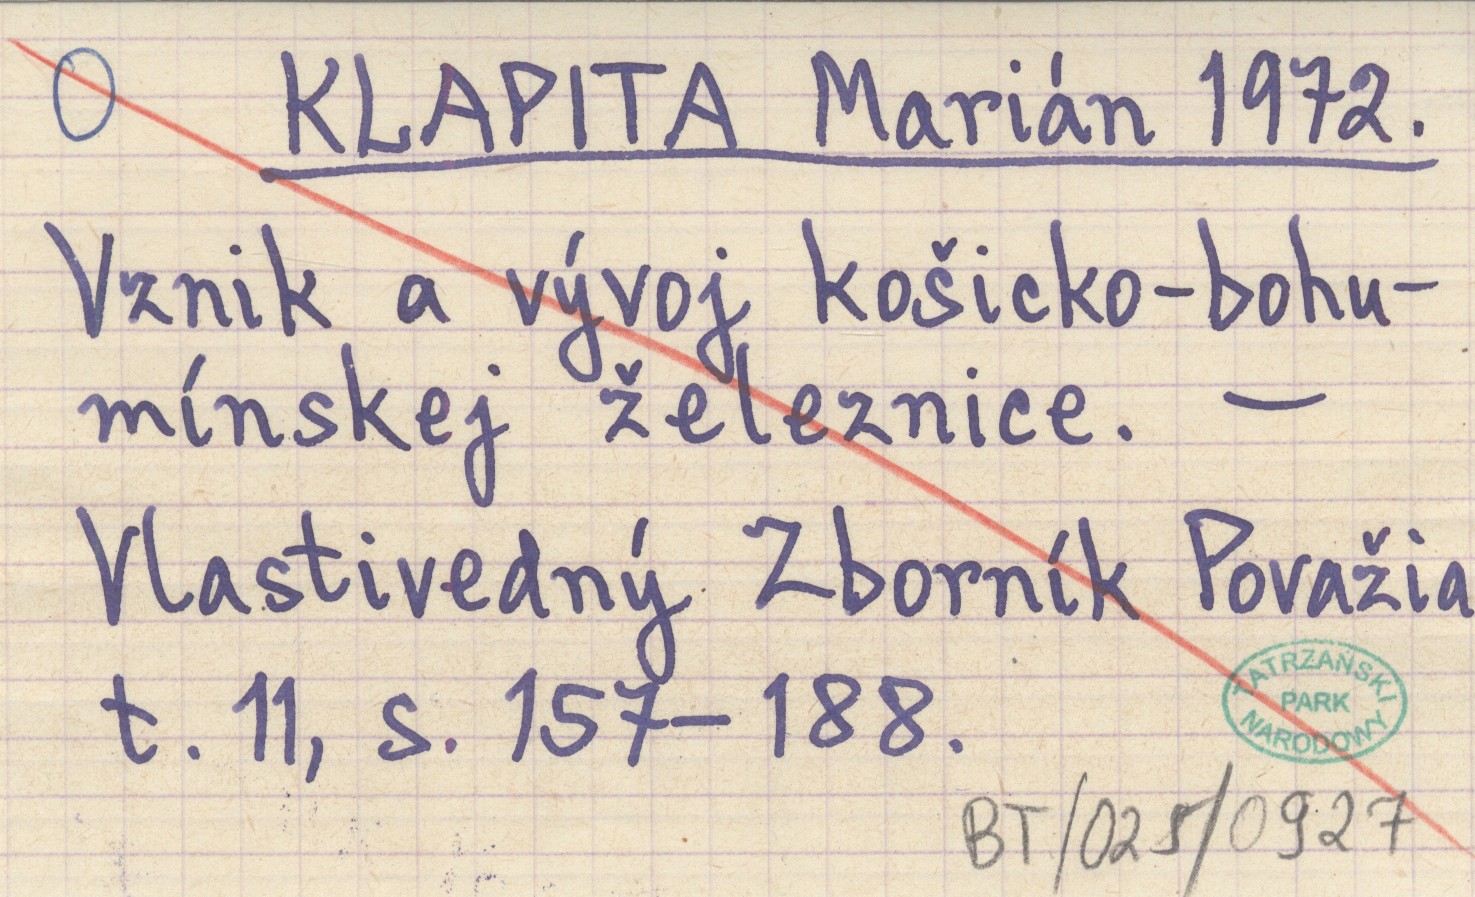 O KLAPITA Marián 1972.
Vznik a vývoj košicko-bohu-
mínskej železnice. —
Vlastivedný Zborník Považia
t. 11, s. 157-188.
TATRZAŃSKI
PARK
NARODOWY
BT/025/0927